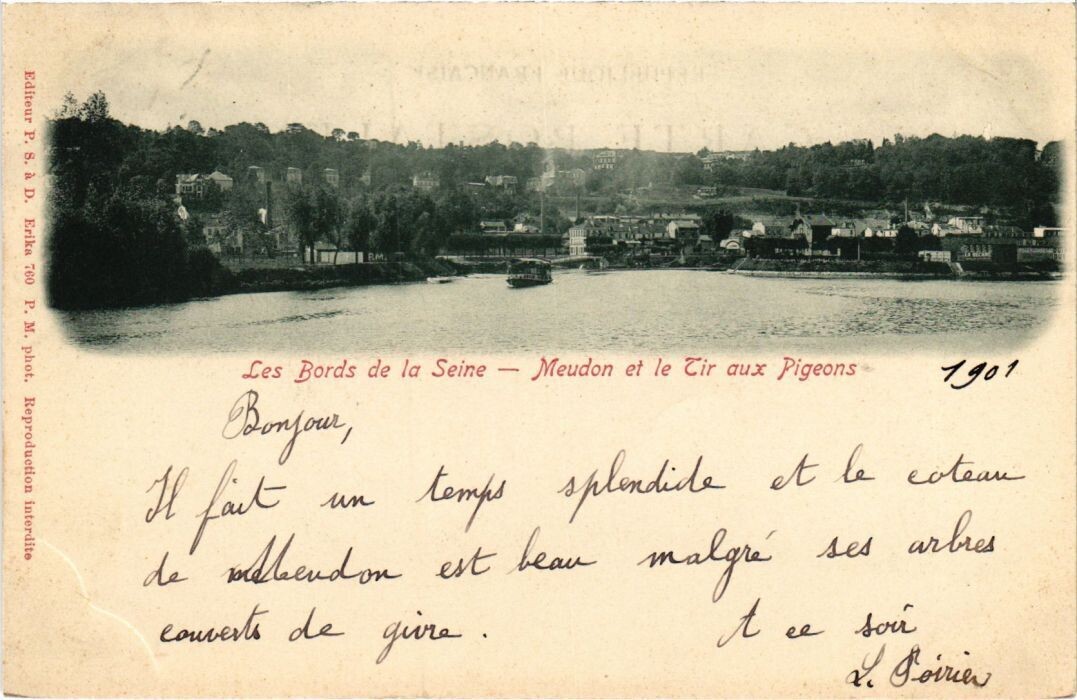 Editeur P. S. à D. Erika 760 P. M. phot. Reproduction interdite
Les Bords de la Seine — Meudon et le Tir aux Pigeons
1901
Bonjour,
Il fait un temps splendide et le coteau
de Meudon est beau malgré ses arbres
couverts de givre. A ce soir
L. Poirier